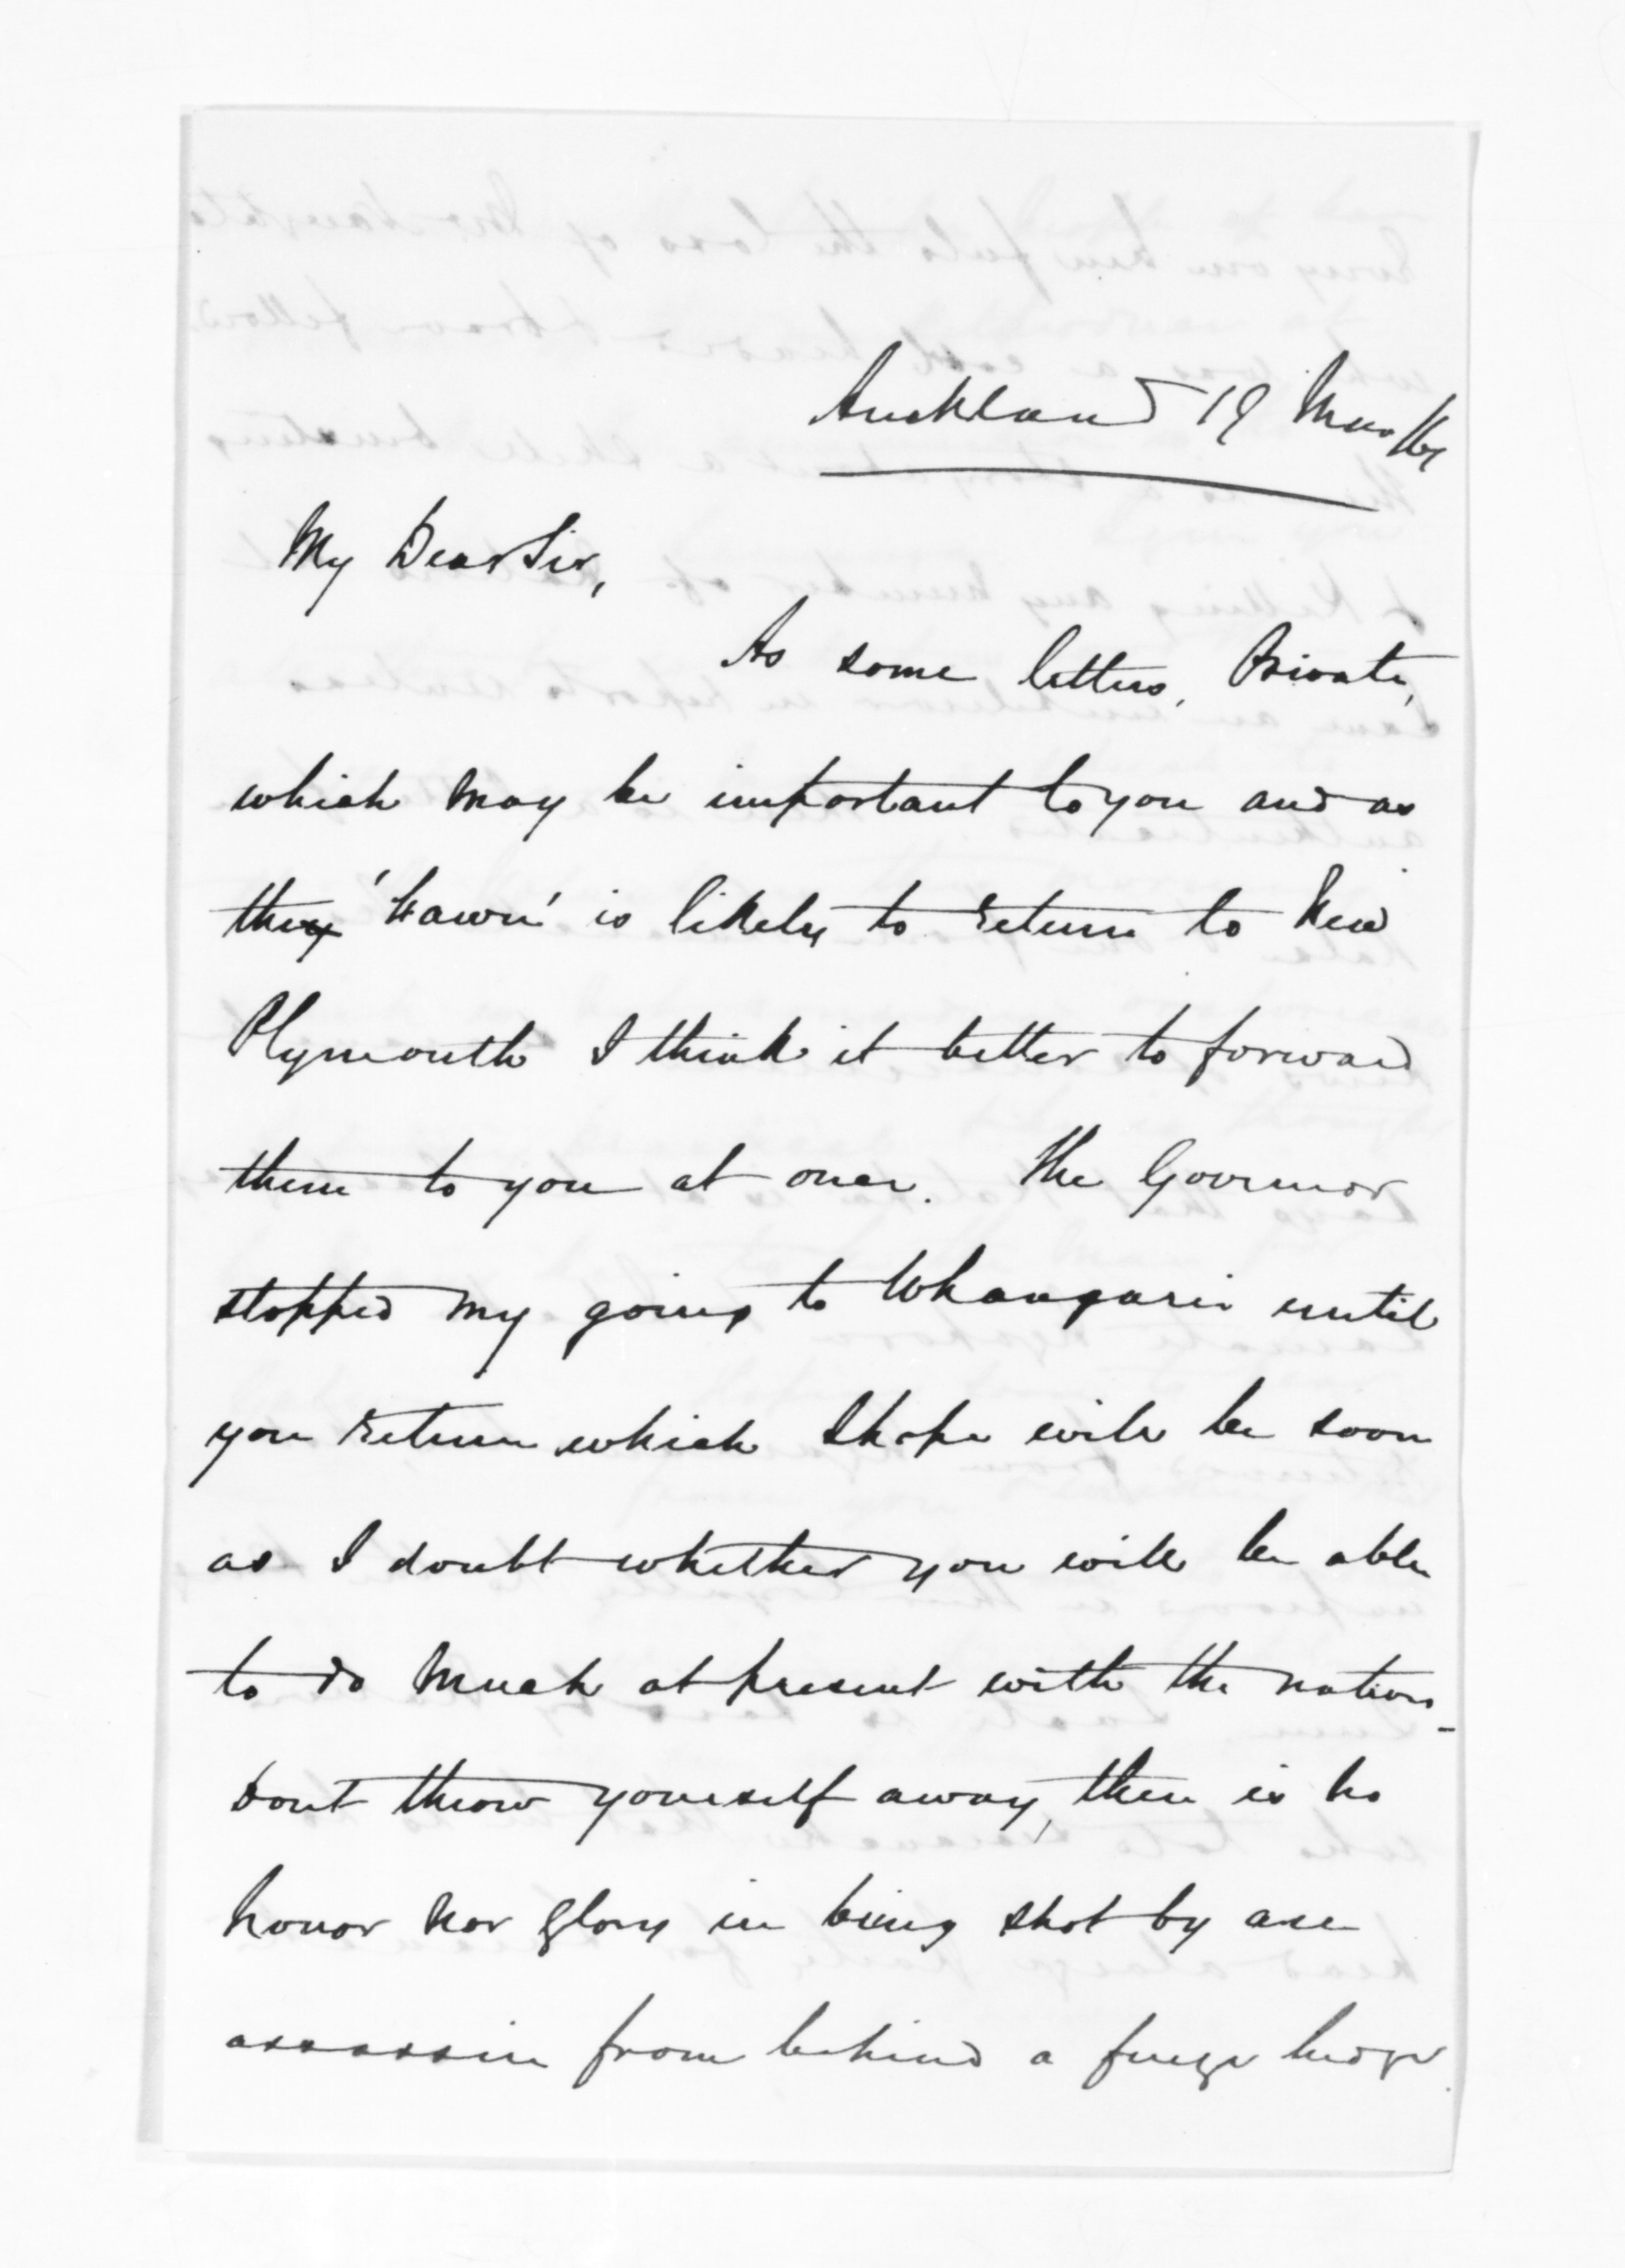 Auckland 19 Mar /64
My Dear Sir,
As some letters, Private,
which may be important to you and as
they 'Fawn' is likely to return to New
Plymouth I think it better to forward
them to you at once. The Governor
stopped my going to Whangarei until
you return which I hope will be soon
as I doubt whether you will be able
to do much at present with the natives_
Dont throw yourself away, there is no
honor nor glory in being shot by an
assassin from behind a furze hedge